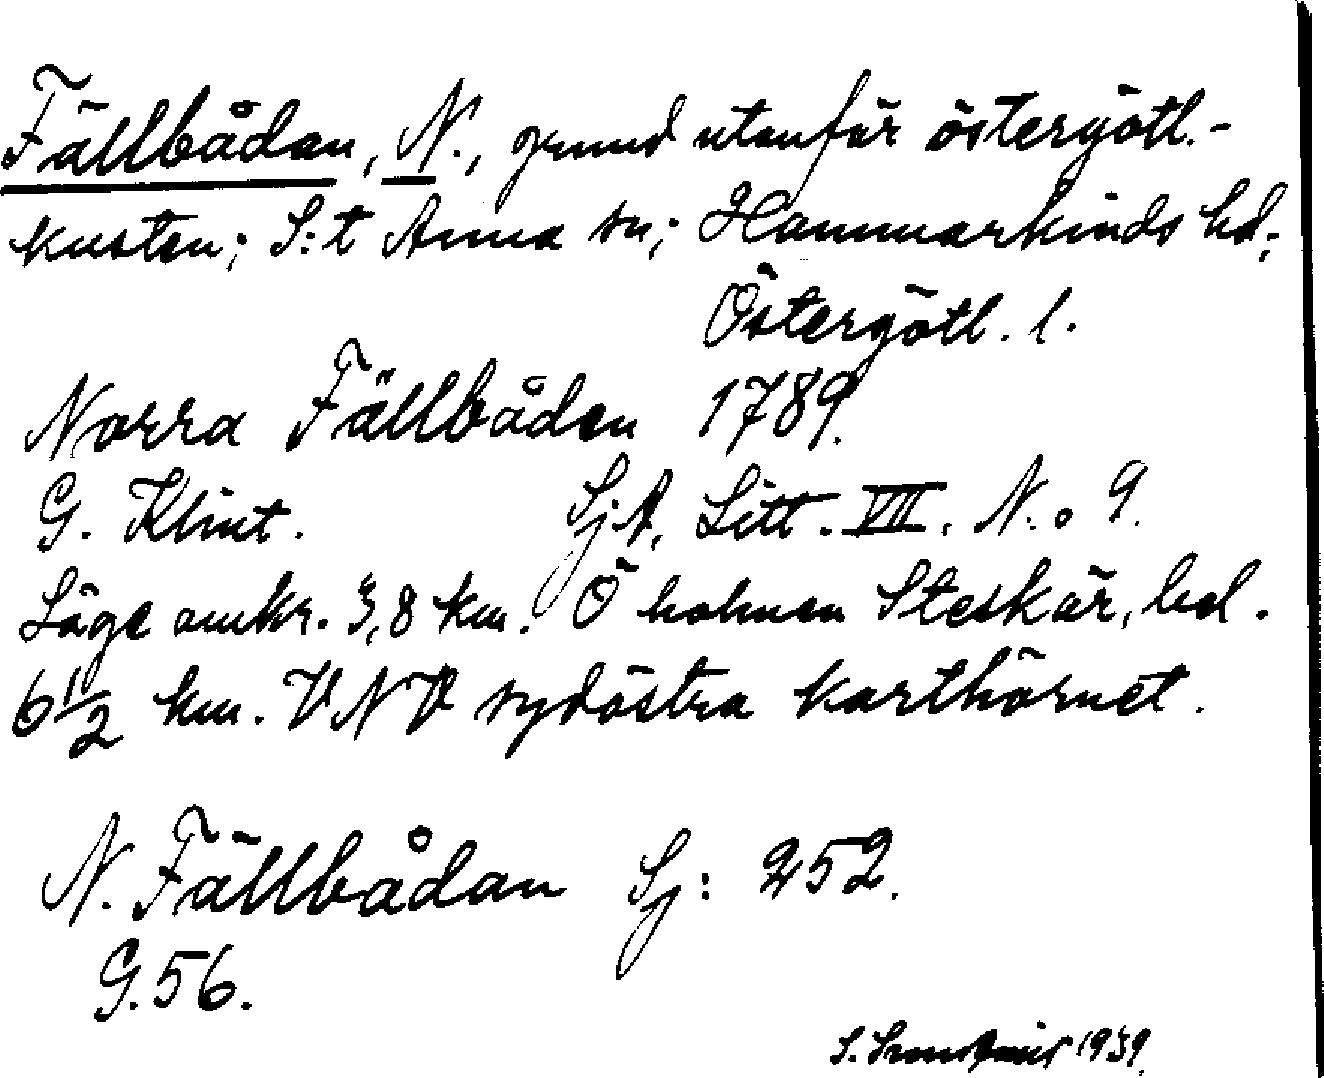 Fällbådan, N., grund utanför östergötl.-
kusten; S:t Anna sn; Hammarkinds hd;
Östergötl. l.
Norra Fällbåden 1789.
G. Klint. Sj.A, Litt. VII. N.o 9.
Läge omkr. 3,8 km. Ö holmen Steskär, bel.
6 1/2 km. VNV sydöstra karthörnet.
N. Fällbådan Sj: 252.
G. 56.
S. 1939.